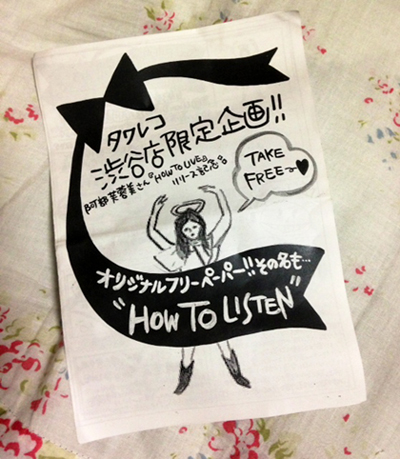 タワレコ
渋谷店限定企画!!
阿部芙蓉美さん『HOW TO LIVE』
リリース記念品
TAKE
FREE〜♥
オリジナルフリーペーパー!!その名も…
"HOW TO LISTEN"